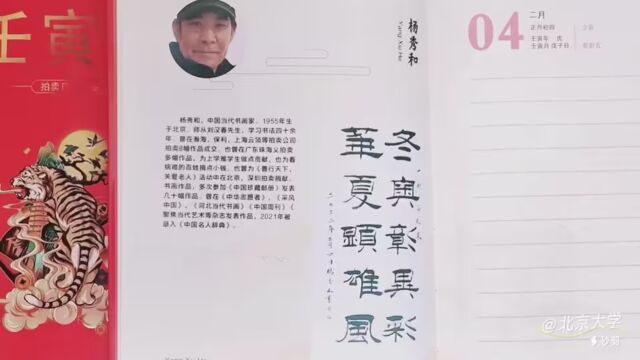 壬寅
拍卖
杨秀和
Yang Xiu He
杨秀和，中国当代书画家，1955年生
于北京，师从刘汉春先生，学习书法四十余
年，曾在瀚海、保利、上海云领等拍卖公司
拍卖多幅作品成交，也曾在广东珠海义拍卖
多幅作品，为上学难学生做点贡献，也为看
病难的百姓捐点小钱，也曾为《善行天下，
关爱老人》活动中在北京，深圳拍卖捐献，
书画作品，多次参加《中国珍藏邮册》发表
几十幅作品，曾在《中华志愿者》、《采风
中国》、《河北当代书画》《中国周刊》《
聚焦当代艺术等杂志发表作品，2021年被
录入《中国名人辞典》。
冬奥彰异彩
华夏显雄风
Yang Xiu He
04
二月
正月初四
壬寅年 虎
壬寅月 戊子日
@北京大学
秒剪